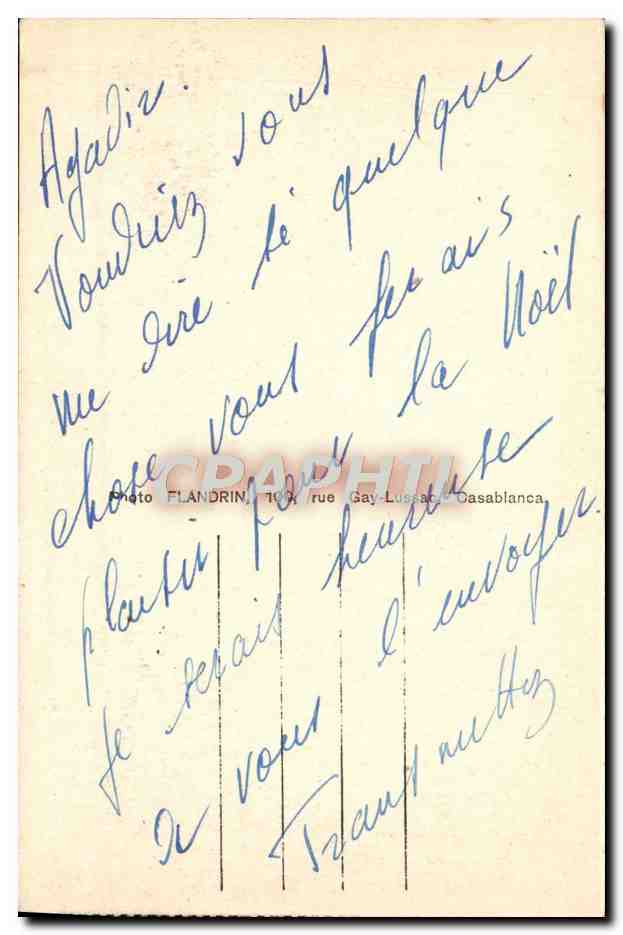 Agadir.
Voudriez vous
me dire si quelque
chose vous ferais
plaisir pour la Noël
je serais heureuse
de vous l'envoyer.
Transmettez
Photo FLANDRIN, 100, rue Gay-Lussac, Casablanca.
CPAPHIL